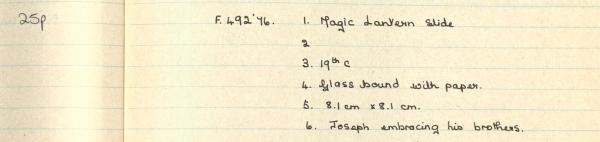 25p F.492'76. 1. Magic Lantern Slide
2
3. 19th C
4. Glass bound with paper.
5. 8.1 cm x 8.1 cm.
6. Joseph embracing his brothers.